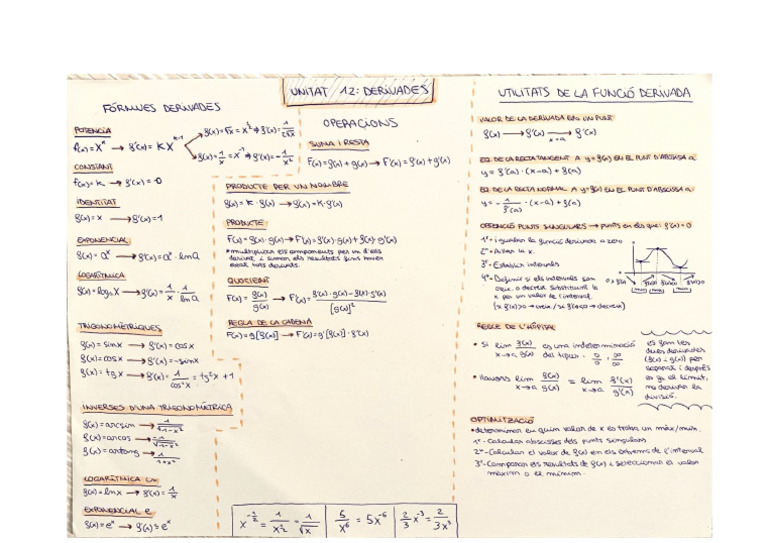 UNITAT 12: DERIVADES
FÓRMULES DERIVADES
POTÈNCIA
f(x)=xⁿ → f'(x)= K X^(K-1)
f(x)=√x = x^(1/2) → f'(x)= 1/(2√x)
f(x)=1/x = x^-1 → f'(x)=-1/x²
CONSTANT
f(x)=k → f'(x)=0
IDENTITAT
f(x)=x → f'(x)=1
EXPONENCIAL
f(x)=aˣ → f'(x)=aˣ·ln a
LOGARÍTMICA
f(x)=logₐx → f'(x)= 1/x · 1/ln a
TRIGONOMÈTRIQUES
f(x)=sinx → f'(x)=cosx
f(x)=cosx → f'(x)=-sinx
f(x)=tgx → f'(x)= 1/cos²x = tg²x+1
INVERSES D'UNA TRIGONOMÈTRICA
f(x)=arcsin → 1/√(1-x²)
f(x)=arcos → -1/√(1-x²)
f(x)=arctang → 1/(1+x²)
LOGARÍTMICA Ln
f(x)=lnx → f'(x)= 1/x
EXPONENCIAL e
f(x)=eˣ → f'(x)=eˣ
OPERACIONS
SUMA I RESTA
F(x)=f(x)+g(x) → F'(x)=f'(x)+g'(x)
PRODUCTE PER UN NOMBRE
f(x)=K·f(x) → f'(x)=K·f'(x)
PRODUCTE
F(x)=f(x)·g(x) → F'(x)=f'(x)·g(x)+f(x)·g'(x)
*multipliquem els components per un d'ells
derivat, i sumem els resultats fins haver
estat tots derivats.
QUOCIENT
F(x)= f(x)/g(x) → F'(x)= f'(x)·g(x)-f(x)·g'(x)/[g(x)]²
REGLA DE LA CADENA
F(x)=g[f(x)] → F'(x)=g'[f(x)]·f'(x)
x^(-1/2) = 1/x^(1/2) = 1/√x
5/x⁶ = 5x^-6
2/3 x^-3 = 2/3x³
UTILITATS DE LA FUNCIÓ DERIVADA
VALOR DE LA DERIVADA EN UN PUNT
f(x) → f'(x) → x=a f'(x)
EQ. DE LA RECTA TANGENT A y=f(x) EN EL PUNT D'ABSCISSA a
y = f'(a)·(x-a)+f(a)
EQ. DE LA RECTA NORMAL A y=f(x) EN EL PUNT D'ABSCISSA a
y = - 1/f'(a) ·(x-a)+f(a)
OBTENCIÓ PUNTS SINGULARS → punts en els que: f'(x)=0
1º=igualar la funció derivada a zero
2º=Aïllar la x.
3º=Establir intervals
4º=Definir si els intervals són
creix. o decreix. substituint la
x per un valor de l'interval.
REGLE DE L'HÔPITAL
• Si lim x→a f(x)/g(x) és una indeterminació
del tipus: 0/0 o ∞/∞
• llavors lim x→a f(x)/g(x) = lim x→a f'(x)/g'(x)
es fam les
dues derivades
(f(x) i g(x)) per
separat i després
es fa el límit,
no derivar la
divisió.
OPTIMITZACIÓ
•determinar en quin valor de x es troba un màx/mín.
1º-Calcular abscisses dels punts singulars
2º-Calcular el valor de f(x) en els extrems de l'interval
3º-Comparar els resultats de f(x) i seleccionar el valor
màxim o el mínim.